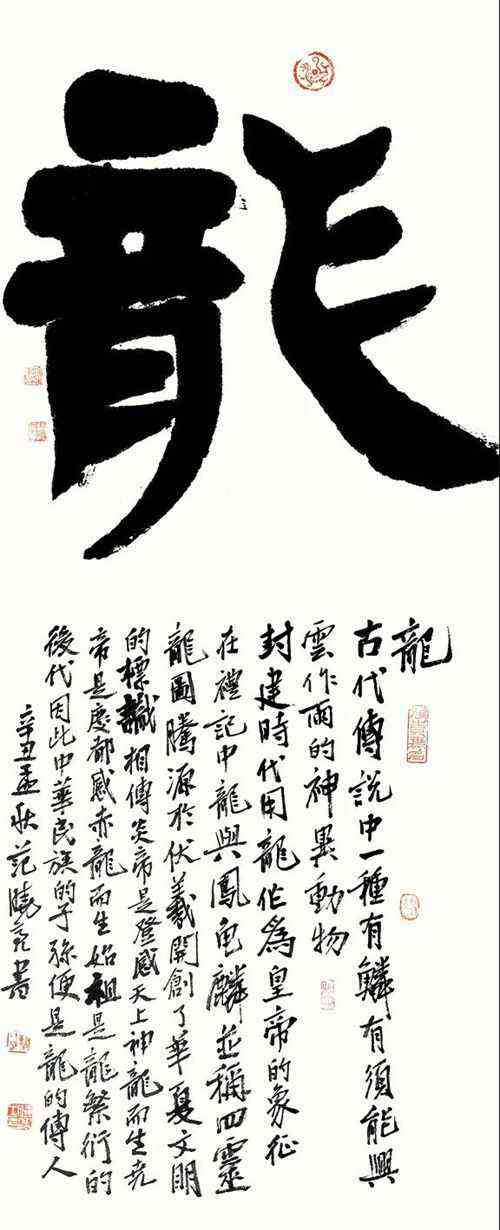 龍
龍
古代傳說中一種有鱗有須能興
雲作雨的神異動物
封建時代用龍作為皇帝的象征
在禮記中龍與鳳龜麟並稱四靈
龍圖騰源於伏羲開創了華夏文明
的標識相傳炎帝是登感天上神龍而生堯
帝是慶都感赤龍而生始祖是龍繁衍的
後代因此中華民族的子孫便是龍的傳人
辛丑孟秋范曉亮書